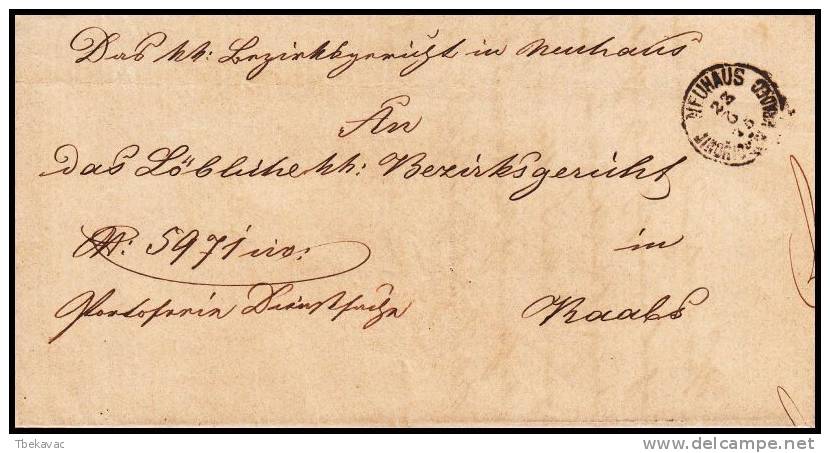 Das kk: Bezirksgericht in Neuhaus
NEUHAUS
23
An
das Löbliche kk: Bezirksgericht
N: 5971 civ:
in
Portofreie Dienstsache
Raabs
Tbekavac
delcampe.net